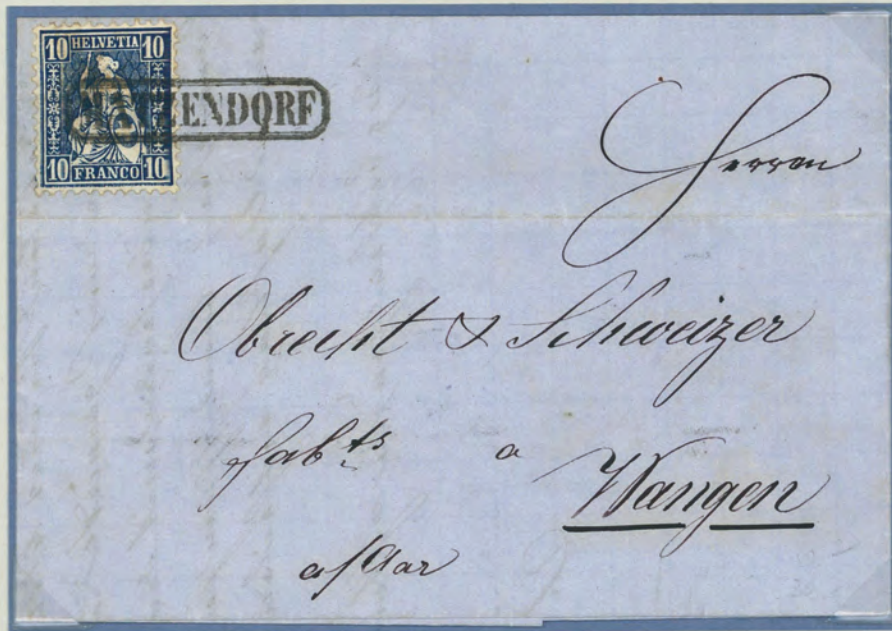 10 HELVETIA 10
ZENDORF
10 FRANCO 10
Herren
Obrecht & Schweizer
fabts a
Wangen
a/Aar